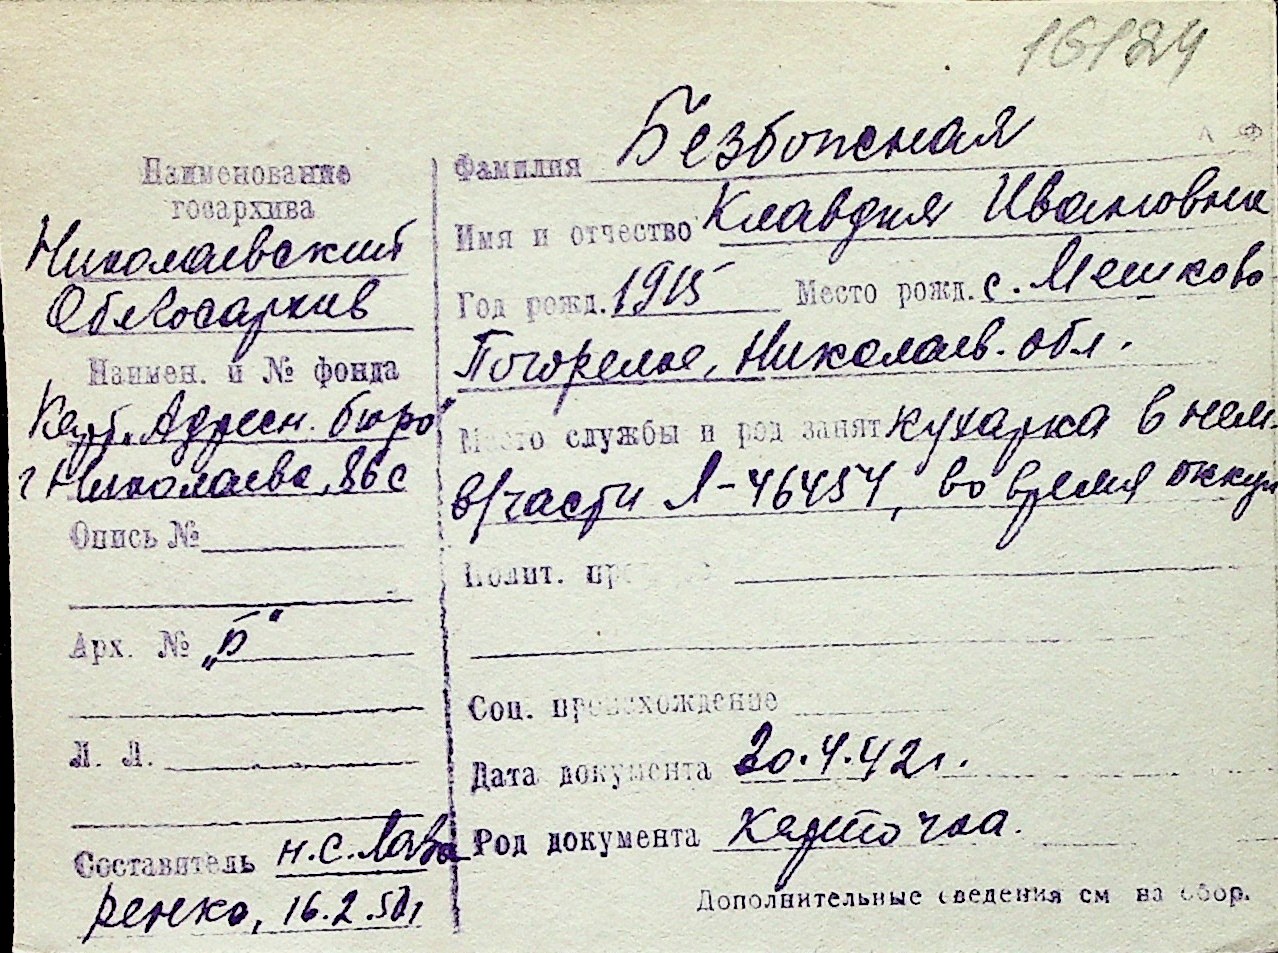 16124
Наименование
госархива
Николаевский
Облгосархив
Наимен. и № фонда
Карт. Адресн. бюро
г Николаева, 86 с
Опись №
Арх. № „Б"
Л. Л.
Составитель Н.С. Лав
ренко, 16.2.50г
Фамилия Безбожная
Имя и отчество Клавдия Ивановна
Год рожд. 1915 Место рожд. с. Мешково
Погорелое, Николаев. обл.
Место службы и род занят кухарка в нем.
в/части Л-46454, во время оккуп
Полит.
Соц. происхождение
Дата документа 20.4.42г.
Род документа карточка.
Дополнительные сведения см на обор.